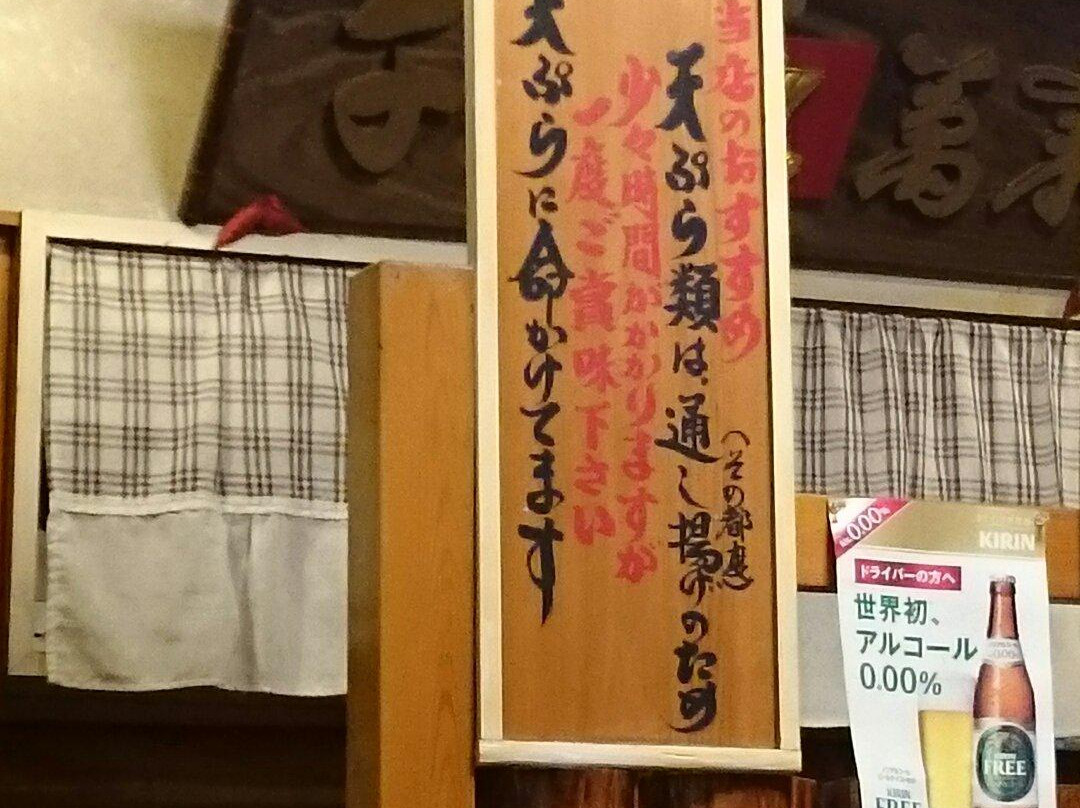 当店のおすすめ
天ぷら類は、通し揚げのため
(その都度)
少々時間がかかりますが
一度ご賞味下さい
天ぷらに命かけてます
0.00%
KIRIN
ドライバーの方へ
世界初、
アルコール
0.00%
FREE
KIRIN
FREE